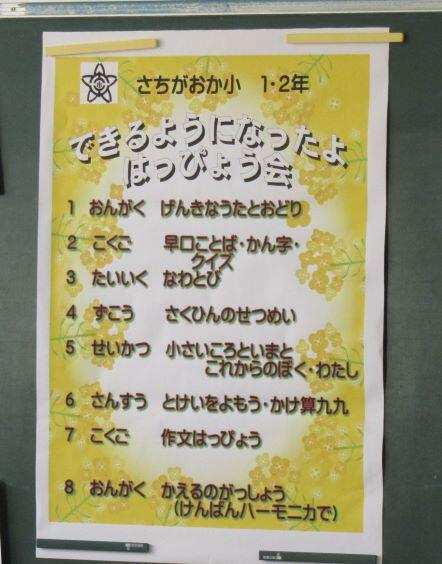 さちがおか小 1・2年
できるようになったよ
はっぴょう会
1 おんがく げんきなうたとおどり
2 こくご 早口ことば・かん字・
クイズ
3 たいいく なわとび
4 ずこう さくひんのせつめい
5 せいかつ 小さいころといまと
これからのぼく・わたし
6 さんすう とけいをよもう・かけ算九九
7 こくご 作文はっぴょう
8 おんがく かえるのがっしょう
(けんばんハーモニカで)